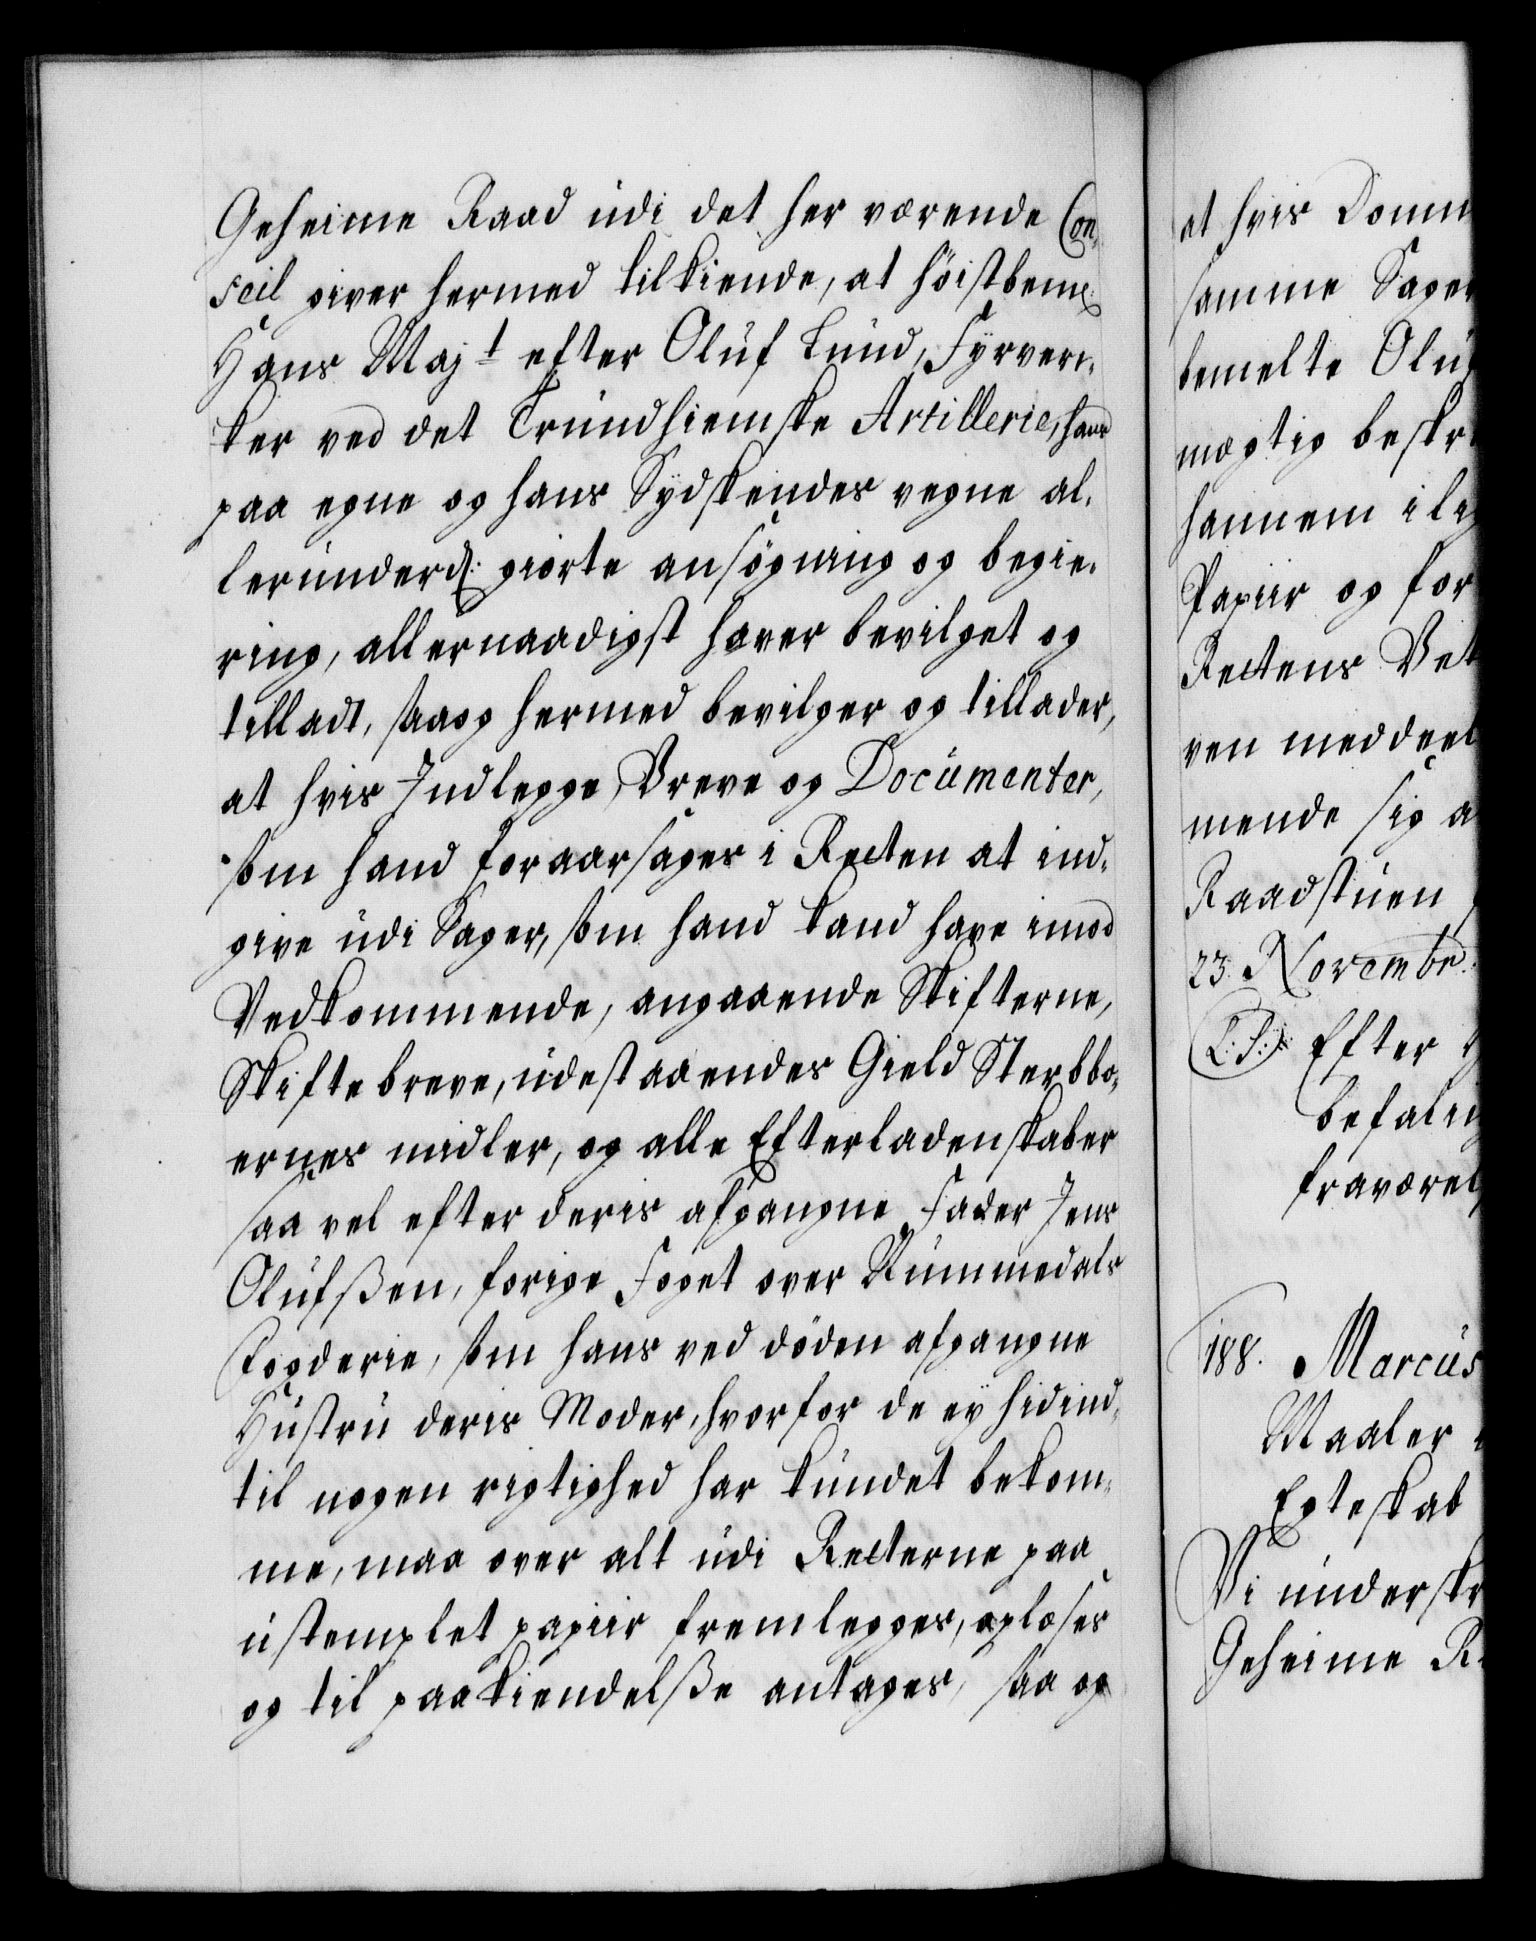 Geheime Raad udi det her værende Con-
seil giver hermed tilkiende, at höistbemt
Hans Majt efter Oluf Lund, Fyrver-
ker ved det Trundhiemske Artillerie, hans
paa egne og hans Sydskendes vegne al-
lerunderd: giorte ansögning og begie-
ring, allernaadigst haver bevilget og
tilladt, saaog hermed bevilger og tillader,
at hvis Indlegge, Breve og Documenter,
som hand foraarsages i Retten at ind-
give udi Sager, som hand kand have imod
Vedkommende, angaaende Skifterne,
Skiftebreve, udestaaendes Gield Sterbbo-
ernes midler, og alle Efterladenskaber
saa vel efter deris afgangne Fader Jens
Olufsen, forige Foget over Nummedals
Fogderie, som hans ved döden afgangne
Hustru deris Moder, hvorfor de ey hidind-
til nogen rigtighed har kundet bekom-
me, maa over alt udi Retterne paa
ustemplet papiir fremlegges, oplæses
og til paakiendelsse antages, saa og
at hvis Domm
samme Sager
bemelte Oluf
mægtig beskr
hannem i lig
Papiir og for
Rettens Bet
ven meddeel
mende sig a
Raadstuen
23. Novembr:
L: S: Efter
befali
fraværel
188. Marcus
Maaler
Egteskab
Vi underskr
Geheime R